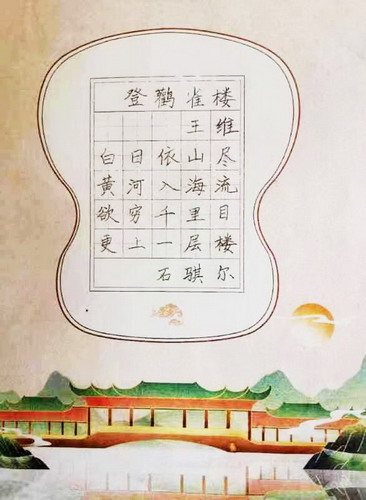 登鹳雀楼
王维
白日依山尽
黄河入海流
欲穷千里目
更上一层楼
石骐尔